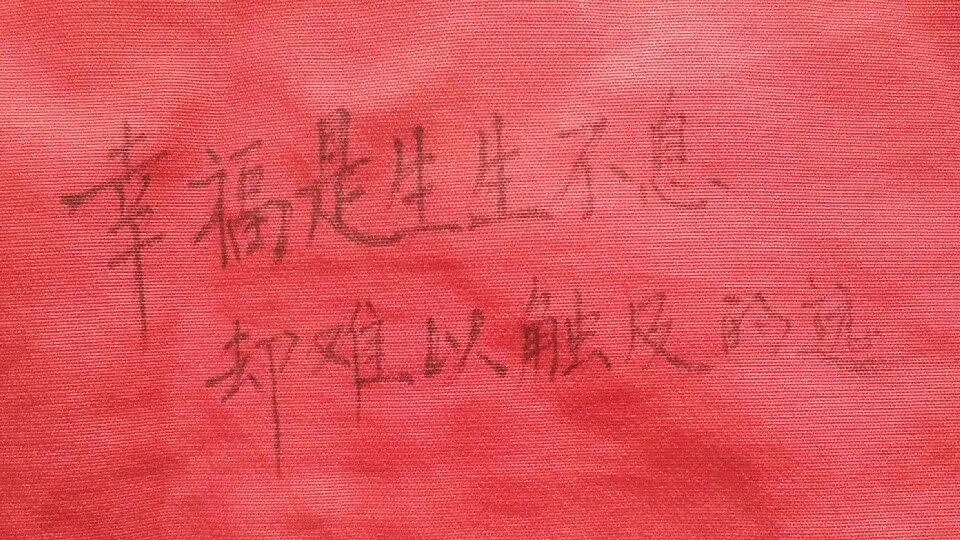 幸福是生生不息
却难以触及的远